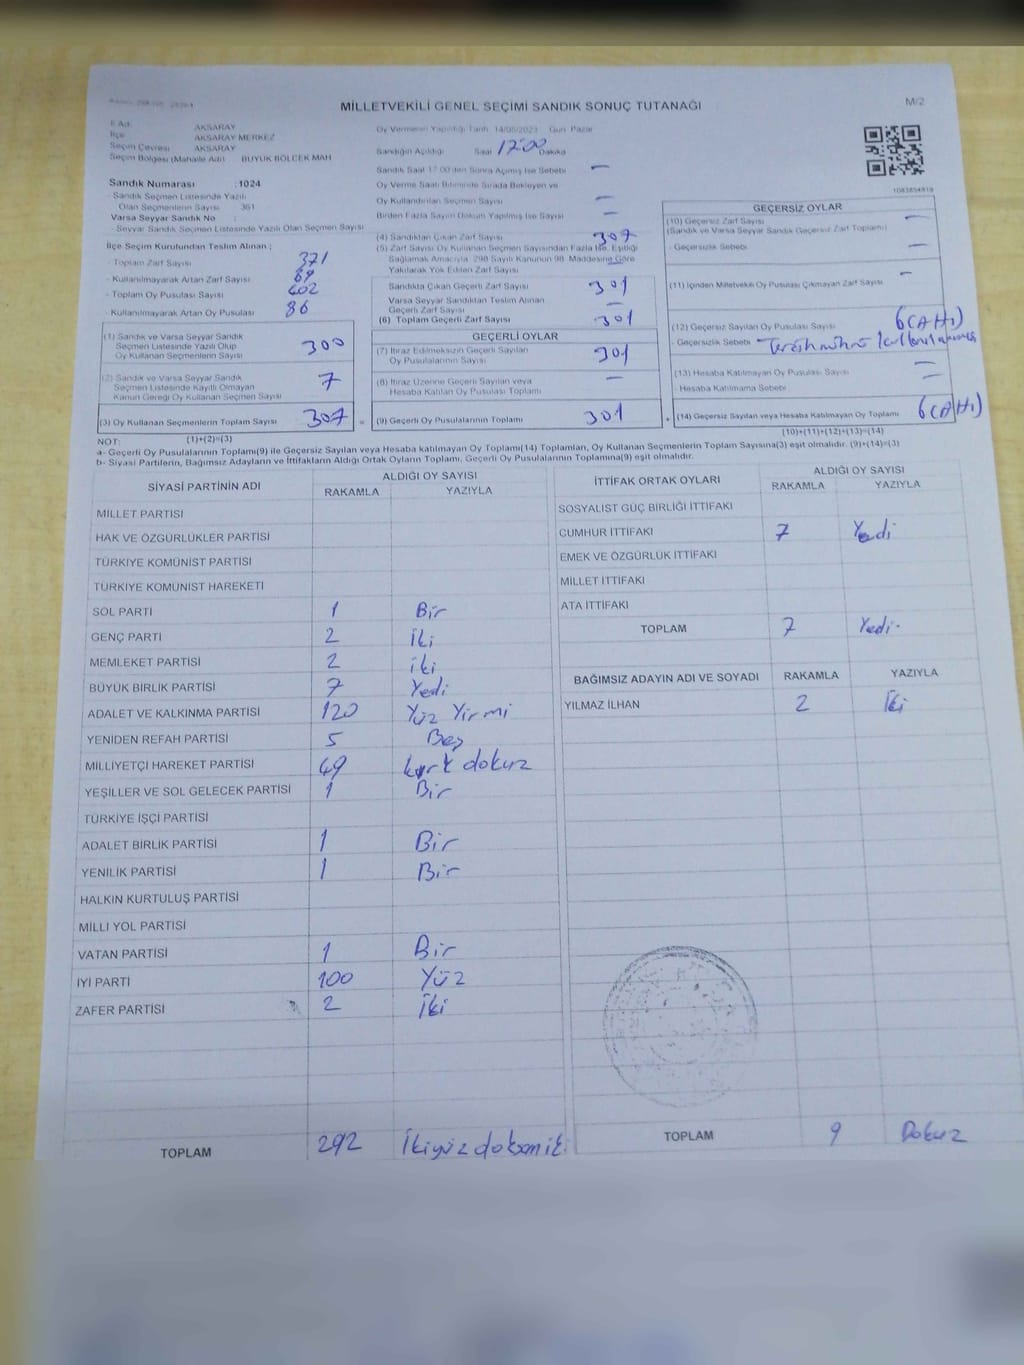 MİLLETVEKİLİ GENEL SEÇİMİ SANDIK SONUÇ TUTANAĞI
M/2
İl Adı AKSARAY
İlçe AKSARAY MERKEZ
Seçim Çevresi AKSARAY
Seçim Bölgesi (Mahalle Adı) BÜYÜK BÖLCEK MAH
Oy Vermenin Yapıldığı Tarih 14/05/2023 Gün Pazar
Sandığın Açıldığı Saat 17:00 Dakika
Sandık Saat 17:00'den Sonra Açılmış İse Sebebi —
Oy Verme Saati Bitiminde Sırada Bekleyen ve
Oy Kullandırılan Seçmen Sayısı —
Birden Fazla Sayım Döküm Yapılmış İse Sayısı —
1083854819
Sandık Numarası : 1024
- Sandık Seçmen Listesinde Yazılı
Olan Seçmenlerin Sayısı : 361
Varsa Seyyar Sandık No :
- Seyyar Sandık Seçmen Listesinde Yazılı Olan Seçmen Sayısı
İlçe Seçim Kurulundan Teslim Alınan ;
- Toplam Zarf Sayısı 371
- Kullanılmayarak Artan Zarf Sayısı
- Toplam Oy Pusulası Sayısı 402
- Kullanılmayarak Artan Oy Pusulası 86
(1) Sandık ve Varsa Seyyar Sandık
Seçmen Listesinde Yazılı Olup
Oy Kullanan Seçmenlerin Sayısı 300
(2) Sandık ve Varsa Seyyar Sandık
Seçmen Listesinde Kayıtlı Olmayan
Kanun Gereği Oy Kullanan Seçmen Sayısı 7
(3) Oy Kullanan Seçmenlerin Toplam Sayısı 307
(1)+(2)=(3)
(4) Sandıktan Çıkan Zarf Sayısı 307
(5) Zarf Sayısı Oy Kullanan Seçmen Sayısından Fazla İse, Eşitliği
Sağlamak Amacıyla, 298 Sayılı Kanunun 98. Maddesine Göre
Yakılarak Yok Edilen Zarf Sayısı —
Sandıkta Çıkan Geçerli Zarf Sayısı 301
Varsa Seyyar Sandıktan Teslim Alınan
Geçerli Zarf Sayısı —
(6) Toplam Geçerli Zarf Sayısı 301
GEÇERLİ OYLAR
(7) İtiraz Edilmeksizin Geçerli Sayılan
Oy Pusulalarının Sayısı 301
(8) İtiraz Üzerine Geçerli Sayılan veya
Hesaba Katılan Oy Pusulası Toplamı —
= (9) Geçerli Oy Pusulalarının Toplamı 301 +
GEÇERSİZ OYLAR
(10) Geçersiz Zarf Sayısı —
(Sandık ve Varsa Seyyar Sandık Geçersiz Zarf Toplamı)
- Geçersizlik Sebebi —
(11) İçinden Milletvekili Oy Pusulası Çıkmayan Zarf Sayısı —
(12) Geçersiz Sayılan Oy Pusulası Sayısı 6 (Altı)
- Geçersizlik Sebebi Tercih mührü kullanılmamış
(13) Hesaba Katılmayan Oy Pusulası Sayısı —
Hesaba Katılmama Sebebi —
(14) Geçersiz Sayılan veya Hesaba Katılmayan Oy Toplamı 6 (Altı)
(10)+(11)+(12)+(13)=(14)
NOT:
a- Geçerli Oy Pusulalarının Toplamı(9) ile Geçersiz Sayılan veya Hesaba katılmayan Oy Toplamı(14) Toplamları, Oy Kullanan Seçmenlerin Toplam Sayısına(3) eşit olmalıdır. (9)+(14)=(3)
b- Siyasi Partilerin, Bağımsız Adayların ve İttifakların Aldığı Ortak Oyların Toplamı, Geçerli Oy Pusulalarının Toplamına(9) eşit olmalıdır.
SİYASİ PARTİNİN ADI ALDIĞI OY SAYISI
RAKAMLA YAZIYLA
MİLLET PARTİSİ
HAK VE ÖZGÜRLÜKLER PARTİSİ
TÜRKİYE KOMÜNİST PARTİSİ
TÜRKİYE KOMÜNİST HAREKETİ
SOL PARTİ 1 Bir
GENÇ PARTİ 2 İki
MEMLEKET PARTİSİ 2 iki
BÜYÜK BİRLİK PARTİSİ 7 Yedi
ADALET VE KALKINMA PARTİSİ 120 Yüz Yirmi
YENİDEN REFAH PARTİSİ 5 Beş
MİLLİYETÇİ HAREKET PARTİSİ 49 kırk dokuz
YEŞİLLER VE SOL GELECEK PARTİSİ 1 Bir
TÜRKİYE İŞÇİ PARTİSİ
ADALET BİRLİK PARTİSİ 1 Bir
YENİLİK PARTİSİ 1 Bir
HALKIN KURTULUŞ PARTİSİ
MİLLİ YOL PARTİSİ
VATAN PARTİSİ 1 Bir
İYİ PARTİ 100 Yüz
ZAFER PARTİSİ 2 İki
TOPLAM 292 İkiyüz doksan iki
İTTİFAK ORTAK OYLARI ALDIĞI OY SAYISI
RAKAMLA YAZIYLA
SOSYALİST GÜÇ BİRLİĞİ İTTİFAKI
CUMHUR İTTİFAKI 7 Yedi
EMEK VE ÖZGÜRLÜK İTTİFAKI
MİLLET İTTİFAKI
ATA İTTİFAKI
TOPLAM 7 Yedi
BAĞIMSIZ ADAYIN ADI VE SOYADI RAKAMLA YAZIYLA
YILMAZ İLHAN 2 İki
TOPLAM 9 Dokuz